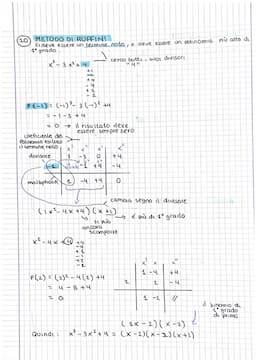 20) METODO DI RUFFINI
Ci deve essere un termine noto, e deve essere un polinomio più alto di
1° grado
x³ - 3x² + 4 → cerco tutti i suoi divisori
"4"
+1
-1
+2
-2
+4
-4
P(-1) = (-1)³ - 3(-1)² + 4
= -1 - 3 + 4
= 0 → il risultato deve
essere sempre zero
coefficiente del
polinomio
il termine noto
x³ x² x¹ x⁰
divisore 1 -3 0 +4
-1 -1 +4 -4
moltiplico 1 -4 +4 0
cambia segno il divisore
(1x² - 4x + 4) (x + 1) → è più di 1° grado
si può
ancora
scomporre
x² - 4x + 4
P(2) = (2)² - 4(2) + 4
= 4 - 8 + 4
= 0
x² x x⁰
1 -4 +4
2 2 -4
1 -2 //
il binomio di
1° grado
di prima
(1x - 2) (x - 2)
Quindi: x³ - 3x² + 4 = (x - 2)(x - 2)(x + 1)